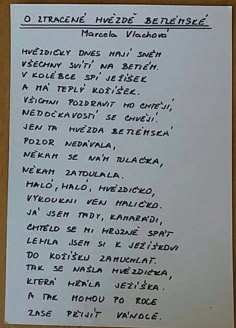 O ZTRACENÉ HVĚZDĚ BETLÉMSKÉ
Marcela Vlachová
HVĚZDIČKY DNES MAJÍ SNĚM
VŠECHNY SVÍTÍ NA BETLÉM.
V KOLÉBCE SPÍ JEŽÍŠEK
A MÁ TEPLÝ KOŽÍŠEK.
VŠICHNI POZDRAVIT HO CHTĚJÍ,
NEDOČKAVOSTÍ SE CHVĚJÍ.
JEN TA HVĚZDA BETLÉMSKÁ
POZOR NEDÁVALA,
NĚKAM SE NÁM TULAČKA,
NĚKAM ZATOULALA.
HALÓ, HALÓ, HVĚZDIČKO,
VYKOUKNI VEN MALIČKO.
JÁ JSEM TADY, KAMARÁDI,
CHTĚLO SE MI HROZNĚ SPÁT
LEHLA JSEM SI K JEŽÍŠKOVI
DO KOŽÍŠKU ZACHUMLAT.
TAK SE NAŠLA HVĚZDIČKA,
KTERÁ HŘÁLA JEŽÍŠKA.
A TAK MOHOU PO ROCE
ZASE PŘIJÍT VÁNOCE.